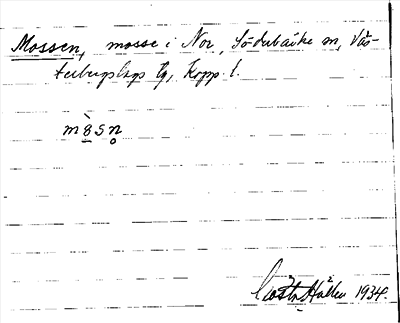 Mossen, mosse i Nor, Söderbärke sn, Väs-
terbergslags tg, Kopp. l.
m8̀sn̥
Gösta Hallen 1934.